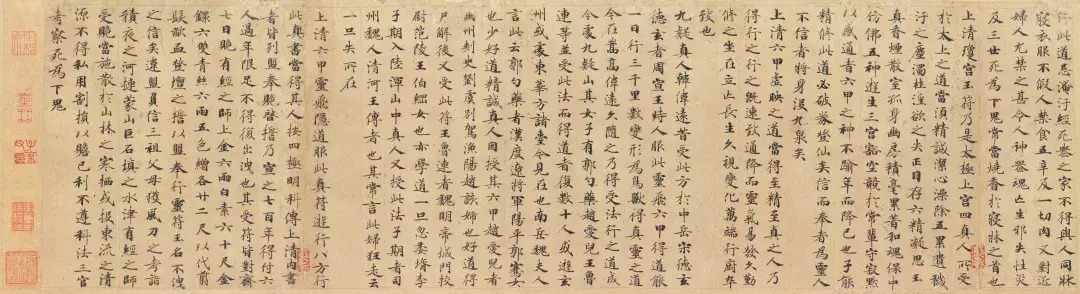 行此道忌淹汙經死喪之家不得與人同牀
寢衣服不假人禁食五辛及一切肉又對近
婦人尤禁之甚令人神喪魂亡生邪失性災
及三世死為下鬼常當燒香於寢牀之首也
上清瓊宮玉符乃是太極上宮四真人所受
於太上之道當須精誠潔心澡除五累遺穢
汙之塵濁杜淫欲之失正目存六精凝思玉
真香煙散室孤身幽房積毫累著和魂保中
仿佛五神遊生三宮豁空競於常輩守寂默
以感通者六甲之神不踰年而降已也子能
精修此道必破券登仙矣信而奉者為靈人
不信者將身沒九泉矣
上清六甲虛映之道當得至精至真之人乃
得行之行之既速致通降而靈氣易發久勤
修之坐在立亡長生久視變化萬端行廚卒
致也
九疑真人韓偉遠昔受此方於中岳宋德玄
德玄者周宣王時人服此靈飛六甲得道能
一日行三千里數變形為鳥獸得真靈之道
今在嵩高偉遠久隨之乃得受法行之道成
今處九疑山其女子有郭勺藥趙愛兒王魯
連等並受此法而得道者復數十人或遊玄
州或處東華方諸臺今見在也南岳魏夫人
言此云郭勺藥者漢度遼將軍陽平郭騫女
也少好道精誠真人因授其六甲趙愛兒者
幽州刺史劉虞別駕漁陽趙該婦也好道得
尸解後又受此符王魯連者魏明帝城門校
尉范陵王伯綱女也亦學道一旦忽委壻李
子期入陸渾山中真人又授此法子期者司
州魏人清河王傳者也其常言此婦狂走云
一旦失所在
上清六甲靈飛隱道服此真符遊行八方行
此真書當得其人按四極明科傳上清內書
者皆列盟奉贄啟誓乃宣之七百年得付六
人過年限足不得復出洩也其受符皆對齋
七日贄有經之師上金六兩白素六十尺金
鐶六雙青絲六兩五色繒各廿二尺以代翦
髮歃血登壇之誓以盟奉行靈符玉名不洩
之信矣違盟負信三祖父母獲風刀之考詣
積夜之河捷蒙山巨石填之水津有經之師
受贄當施散於山林之寒棲或投東流之清
源不得私用割損以贍己利不遵科法三官
考察死為下鬼